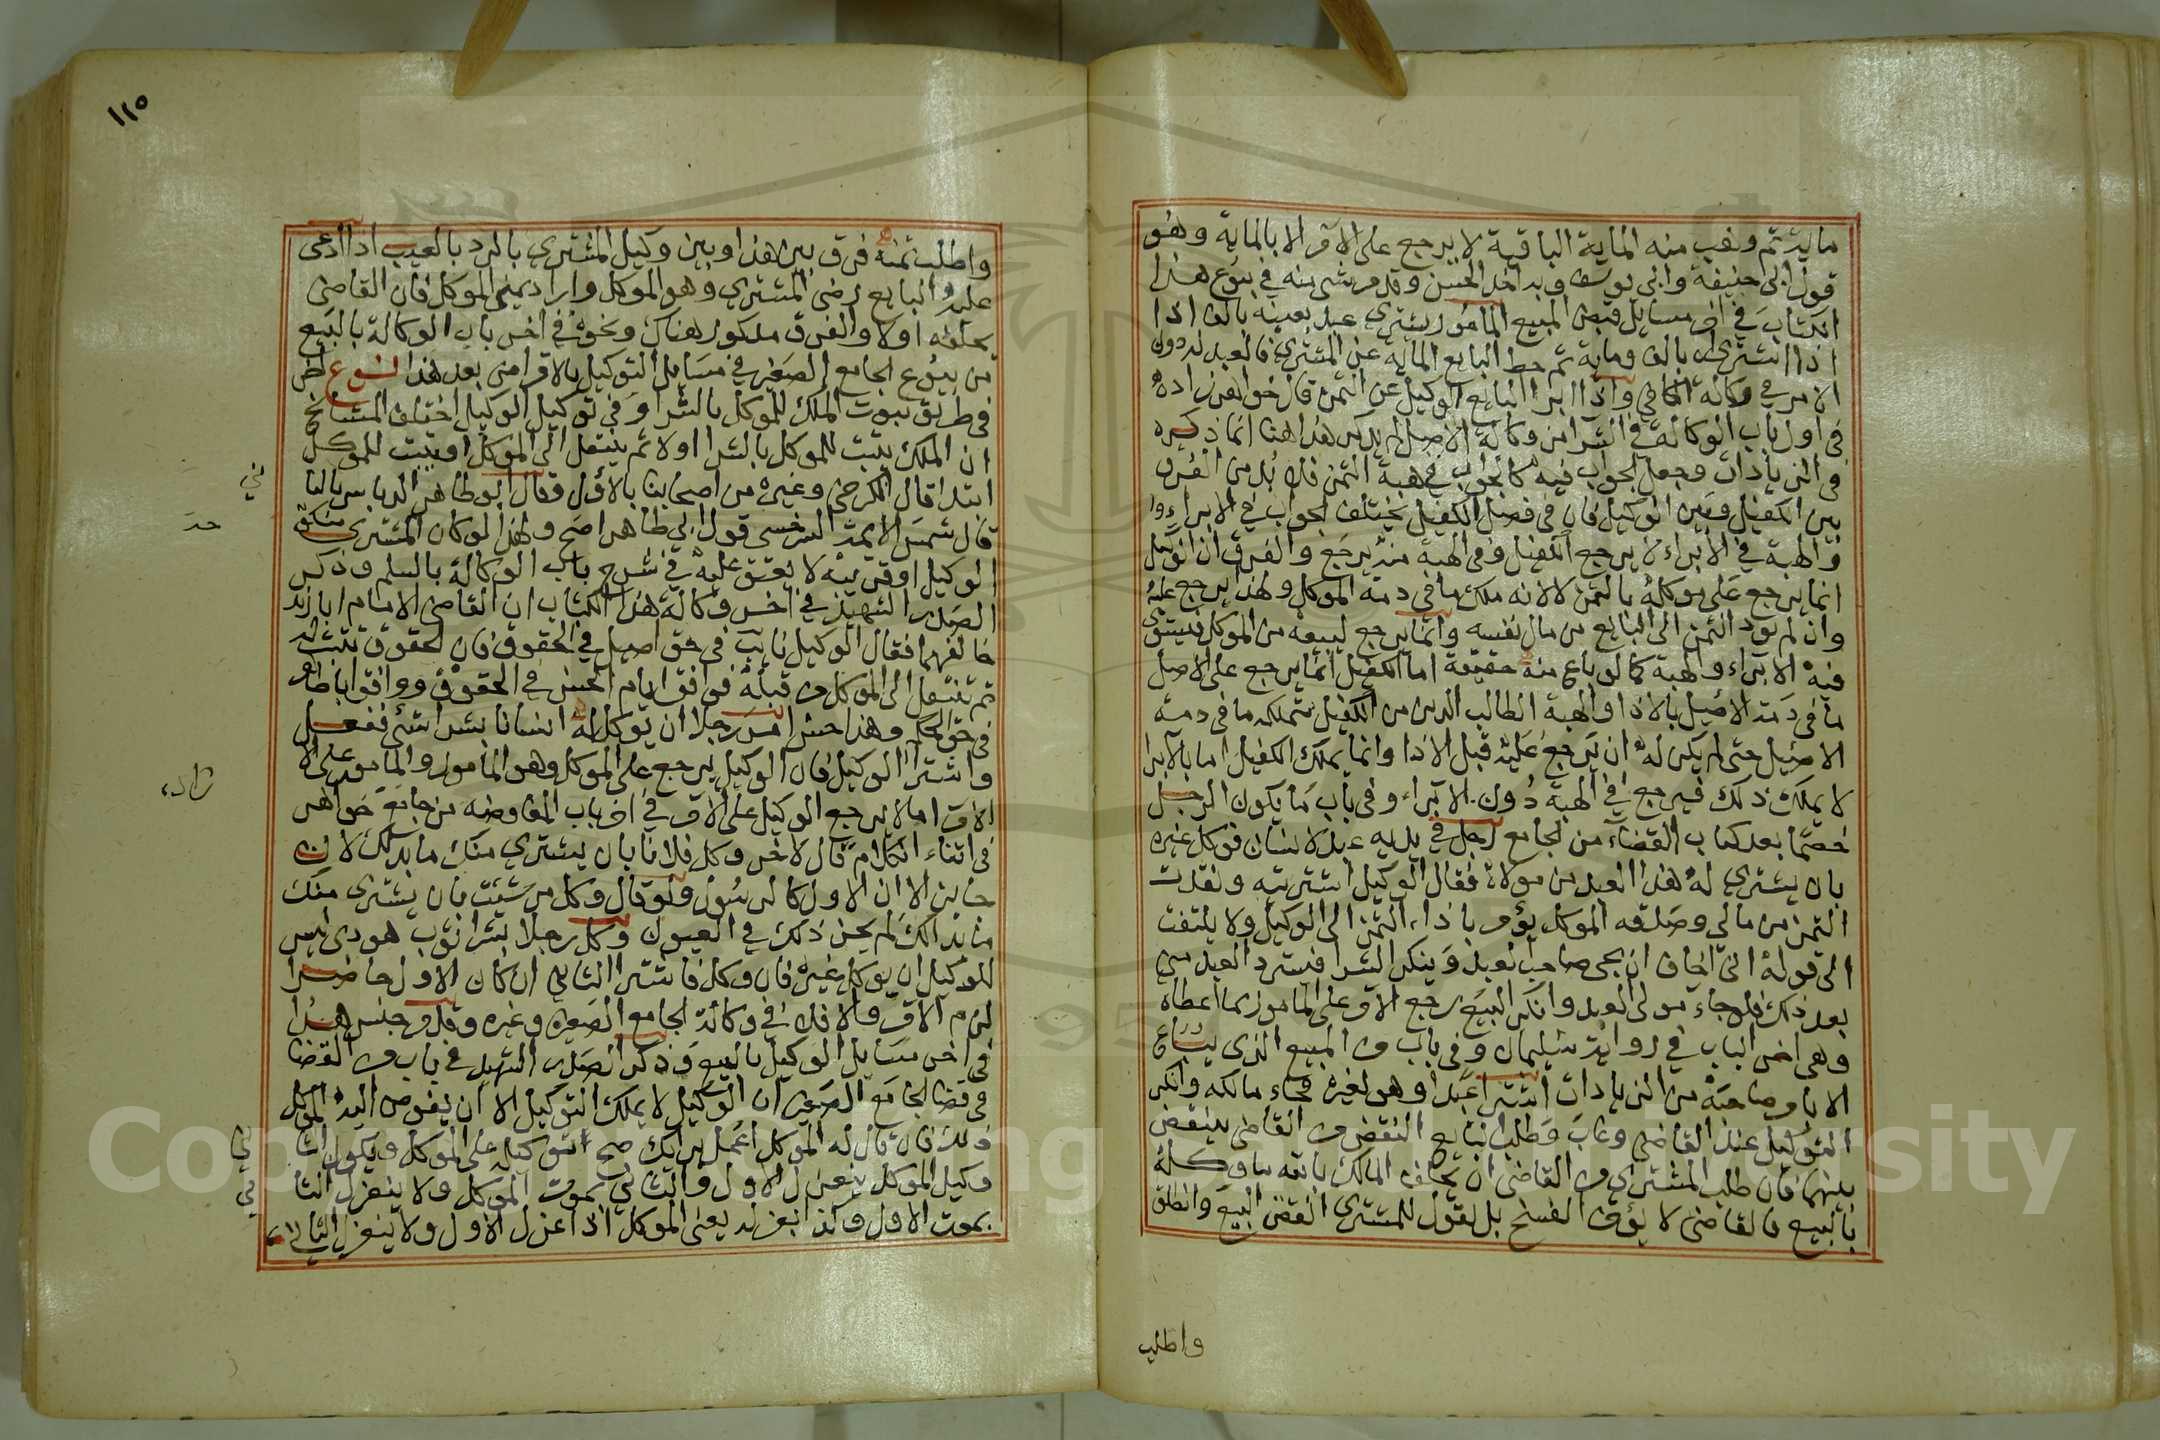 ماية ثم وهب منه الماية الباقية لا يرجع على الآمر الا بالماية وهو
قول ابي حنيفة وابي يوسف وبه اخذ الحسن وقد مر شي منه في بيوع هذا
الكتاب في اخر مسايل قبض المبيع المامور يشتري عبد بعينه بالف اذا
اذا اشترى بالف وماية ثم حط البايع الماية عن المشتري فالعبد له دون
الامر في وكالة الكافي واذا ابرا البايع الوكيل عن الثمن قال خواهر زاده
في اول باب الوكالة في الشرا من وكالة الاصل لم يذكر هذا هنا انما ذكره
في الزيادات وجعل الجواب فيه كالجواب في هبة الثمن فلا بد من الفرق
بين الكفيل وبين الوكيل فان في فصل الكفيل يختلف الجواب في الابراء
والهبة في الابراء لا يرجع الكفيل وفي الهبة منه يرجع والفرق ان الوكيل
انما يرجع على موكله بالثمن لا لانه ملك ما في ذمة الموكل ولهذا يرجع عليه
وان لم يود الثمن الى البايع من مال نفسه وانما يرجع لبيعه من الموكل فيستوي
فيه الابراء والهبة كما لو باع منه حقيقة اما الكفيل انما يرجع على الاصل
ما في ذمة الاصيل بالاذا والهبة الطالب الدين من الكفيل يتملكه ما في ذمة
الاصيل حتى لم يكن له ان يرجع عليه قبل الاذا وانما يملك الكفيل اما بالابرا
لا يملك ذلك فيرجع في الهبة دون الابراء وفي باب ما يكون الرجل
خصما بعد كتاب القضاء من الجامع رجل في يديه عبد لانسان فوكل غيره
بان يشتري له هذا العبد من مولاه فقال الوكيل اشتريته ونقدت
الثمن من مالي وصدقه الموكل يؤمر باداء الثمن الى الوكيل ولا يلتفت
الى قوله اني اخاف ان يجي صاحب العبد وينكر الشرا فيسترد العبد مني
بعد ذلك فلو جاء مولى العبد وانكر البيع رجع الآمر على المامور بما اعطاه
وهي اخر الباب في رواية سليمان وفي باب من المبيع الذي يباع
الا بامر صاحبه من الزيادات اشترا عبدا وهو لغيره فجاء مالكه وانكر
التوكيل عند القاضي وغاب وطلب البايع النقض من القاضي ينقض
بينهما فان طلب المشتري من القاضي ان يحلف المالك بالله ما وكله
بالبيع فالقاضي لا يؤخر الفسخ بل يقول للمشتري انقض البيع وانطلق
واطلب
١١٥
واطلب يمنه فرق بين هذا وبين وكيل المشتري بالرد بالعيب اذا ادعى
عليه البايع رضى المشتري وهو الموكل واراد يمين الموكل فان القاضي
يحلفه اولا والفرق مذكور هناك ونحوه في اخر باب الوكالة بالبيع
من بيوع الجامع الصغير في مسايل التوكيل بالاقرا مني بعد هذا النوع
في طريق ثبوت الملك للموكل بالشرا وفي توكيل الوكيل اختلف المشايخ
ان الملك يثبت للموكل بالشرا اولا ثم ينتقل الى الموكل او يثبت للموكل
ابتدا قال الكرخي وغيره من اصحابنا بالاول وقال ابو طاهر الدباس بالثا
ني
قال شمس الايمة السرخسي قول ابي طاهر اصح ولهذا لو كان المشتري منكوحة
الوكيل او قريبه لا يعتق عليه في شرح باب الوكالة بالسلم وذكر
الصدر الشهيد في اخر وكالة هذا الكتاب ان القاضي الامام ابا زيد
خالفهما فقال الوكيل نايب في حق اصيل في الحقوق فان الحقوق تثبت له
ثم تنتقل الى الموكل من قبله فوافق ابا الحسن في الحقوق ووافق ابا طاهر
في حق الملك وهذا حسن امر رجلا ان يوكل له انسانا بشرا شي ففعل
واشترا الوكيل فان الوكيل يرجع على المومل وهو المامور والمامور على الا
الآمر اما لا يرجع الوكيل على الآمر في اخر باب المفاوضة من جامع خواهر
زاده
في اثناء الكلام قال لاخر وكل فلانا بان يشتري منك ما بدا لك لان
جايز الا ان الاول كالرسول ولو قال وكل من شيت بان يشتري منك
ما بدا لك لم يجز ذلك في العيون وكل رجلا بشرا ثوب هودي ليس
للوكيل ان يوكل غيره فان وكل فاشترا الثاني ان كان الاول حاضرا
لزم الآمر والا فلا في وكالة الجامع الصغير وغيره وقد مر جنس هذا
في اخر مسايل الوكيل بالبيع وذكر الصدر الشهيد في باب من القضا
في قضا الجامع الصغير ان الوكيل لا يملك التوكيل الا ان يفوض اليه الموكل
ذلك فان قال له الموكل اعمل برايك صح التوكيل على الموكل ويكون الثا
ني
وكيل الموكل ينعزل الاول والثاني بموت الموكل ولا ينعزل الثا
ني
بموت الاول وكذا بعزله يعني الموكل اذا عزل الاول ولا ينعزل الثاني